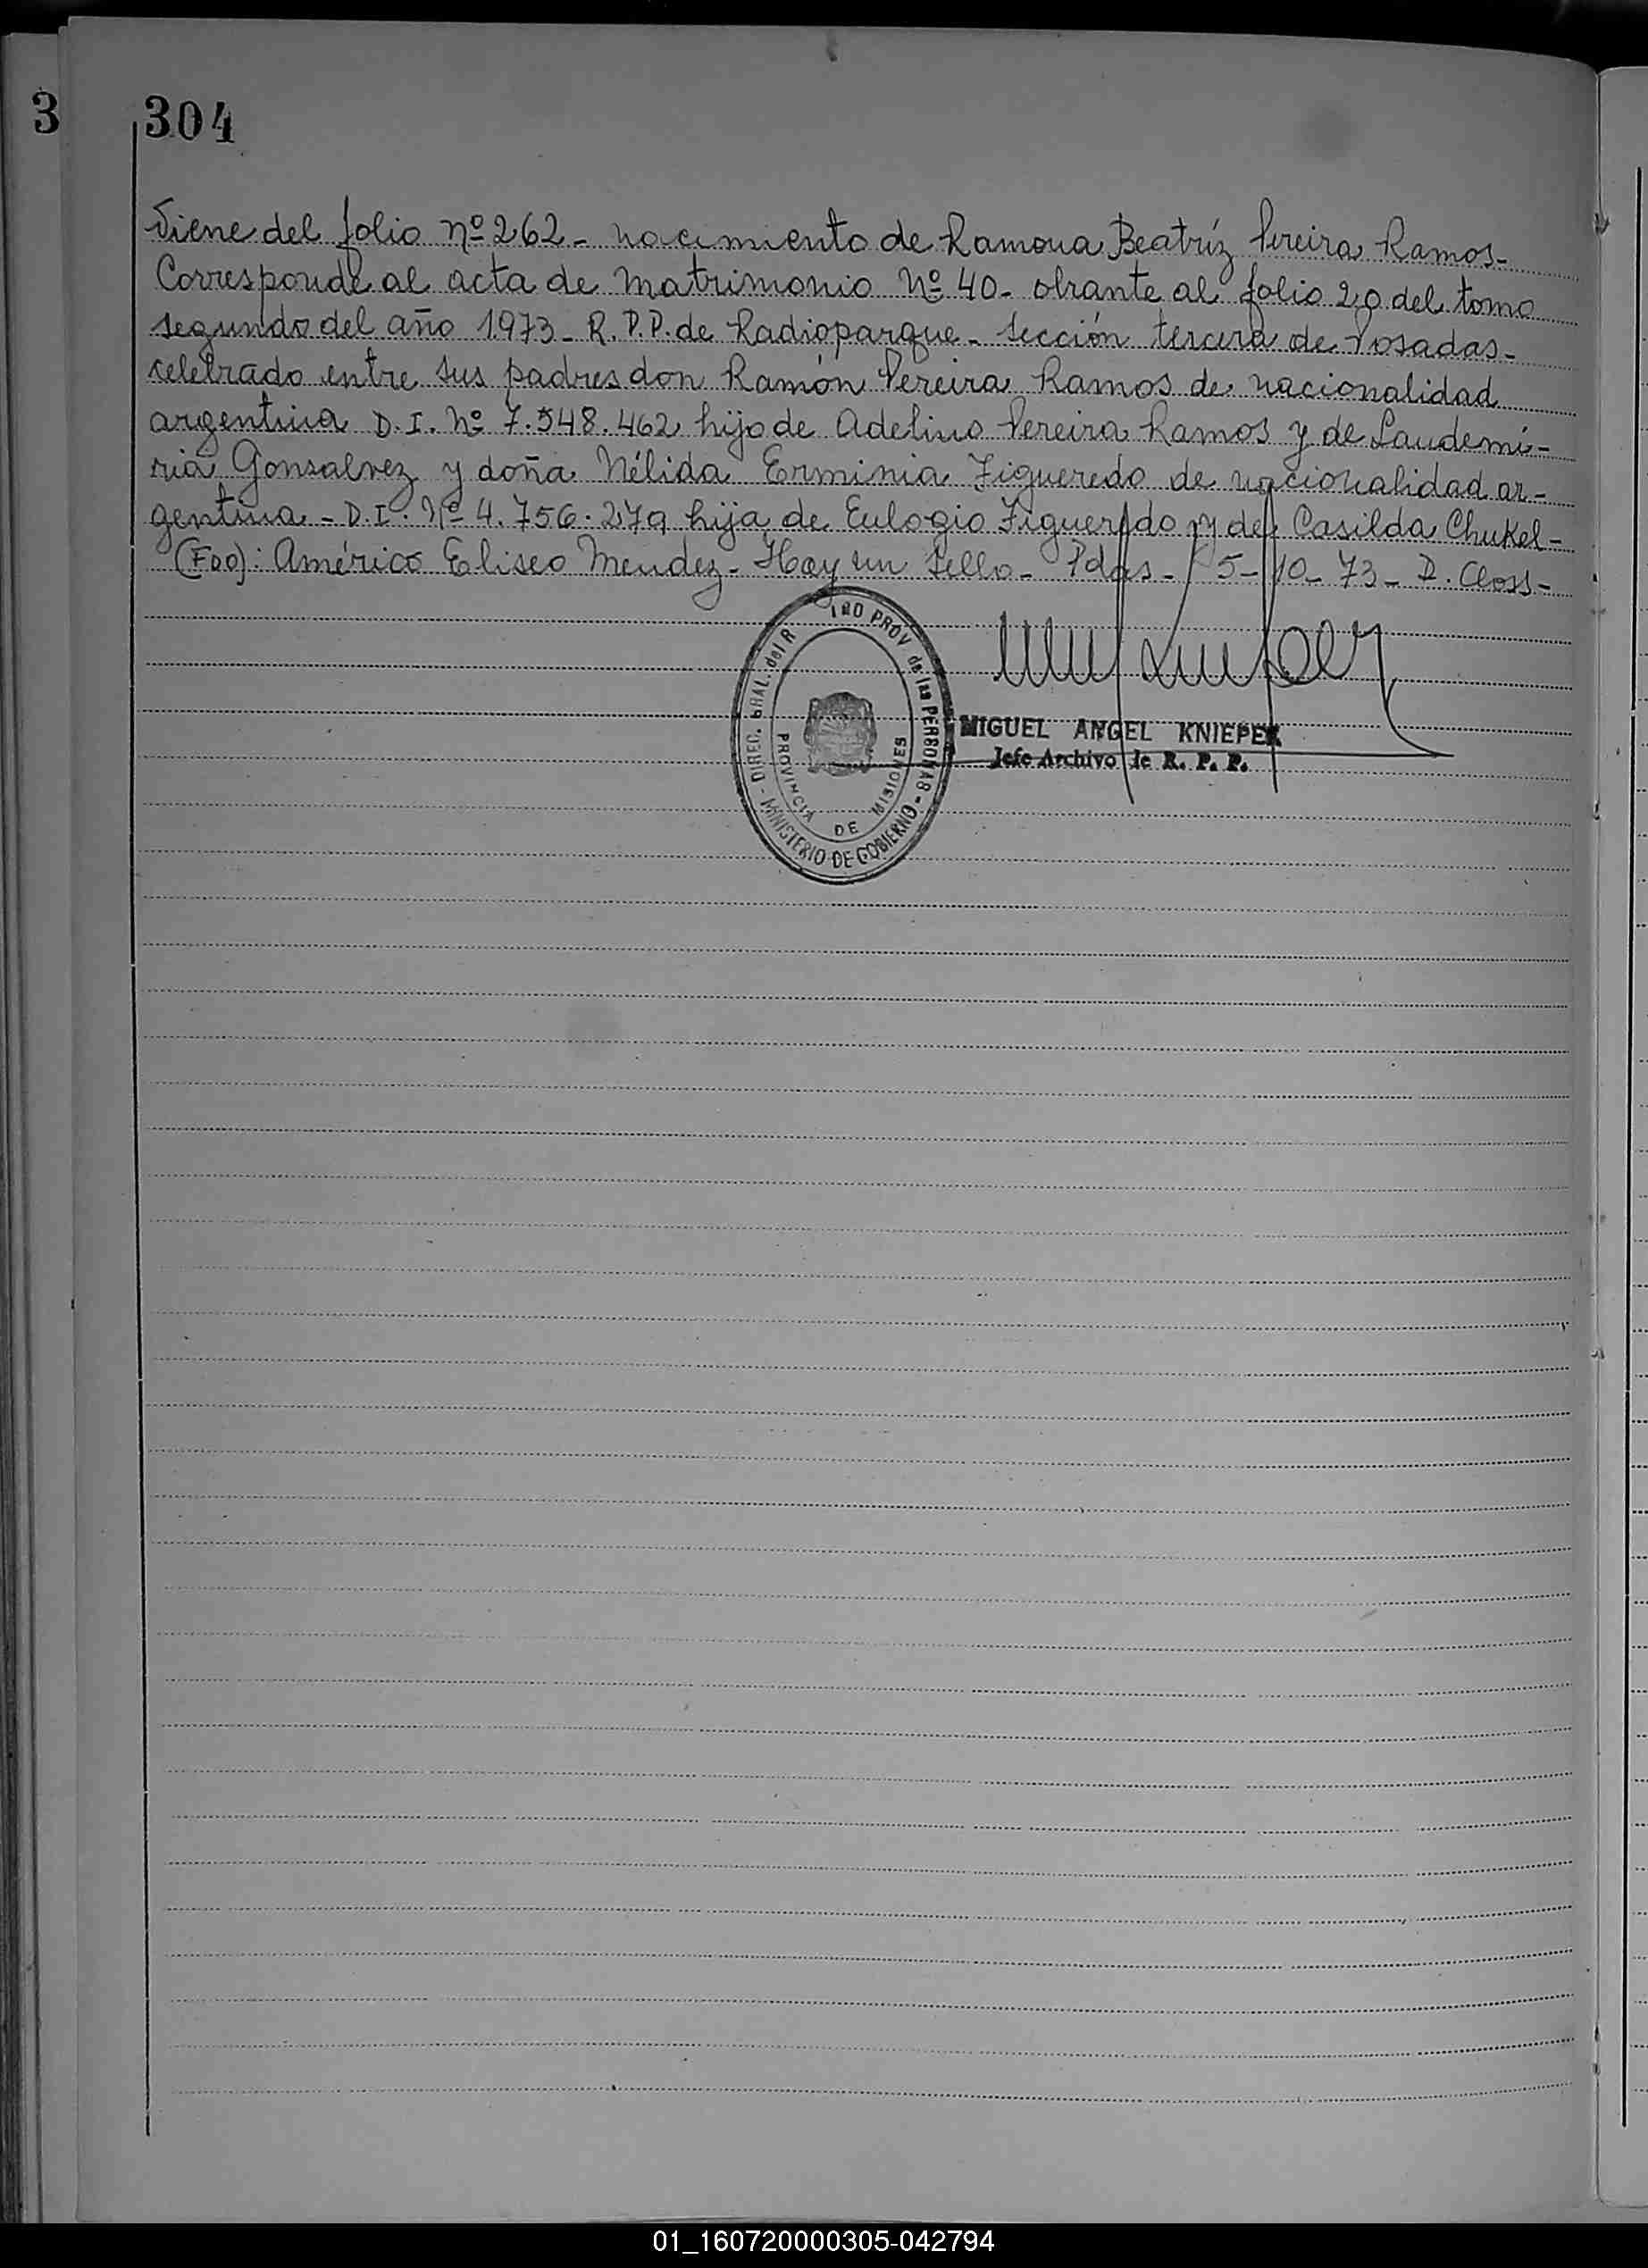 3
304
Viene del folio Nº 262 - nacimiento de Ramona Beatríz Pereira Ramos -
Corresponde al acta de matrimonio Nº 40 - obrante al folio 20 del tomo
segundo del año 1973 - R.P.P. de Radioparque - sección tercera de Posadas -
celebrado entre sus padres don Ramón Pereira Ramos de nacionalidad
argentina D.I. Nº 7.548.462 hijo de Adelino Pereira Ramos y de Laudemi-
ria Gonsalvez y doña Nélida Erminia Figueredo de nacionalidad ar-
gentina - D.I. Nº 4.756.279 hija de Eulogio Figueredo y de Casilda Chukel -
(FDO): Américo Eliseo Mendez - Hay un sello - Pdas - 5-10-73 - D. Closs -
DIREC. GRAL. del R PROV de las PERSONAS - MINISTERIO DE GOBIERNO -
PROVINCIA DE MISIONES
MIGUEL ANGEL KNIEPER
Jefe Archivo de R. P. P.
01_160720000305-042794